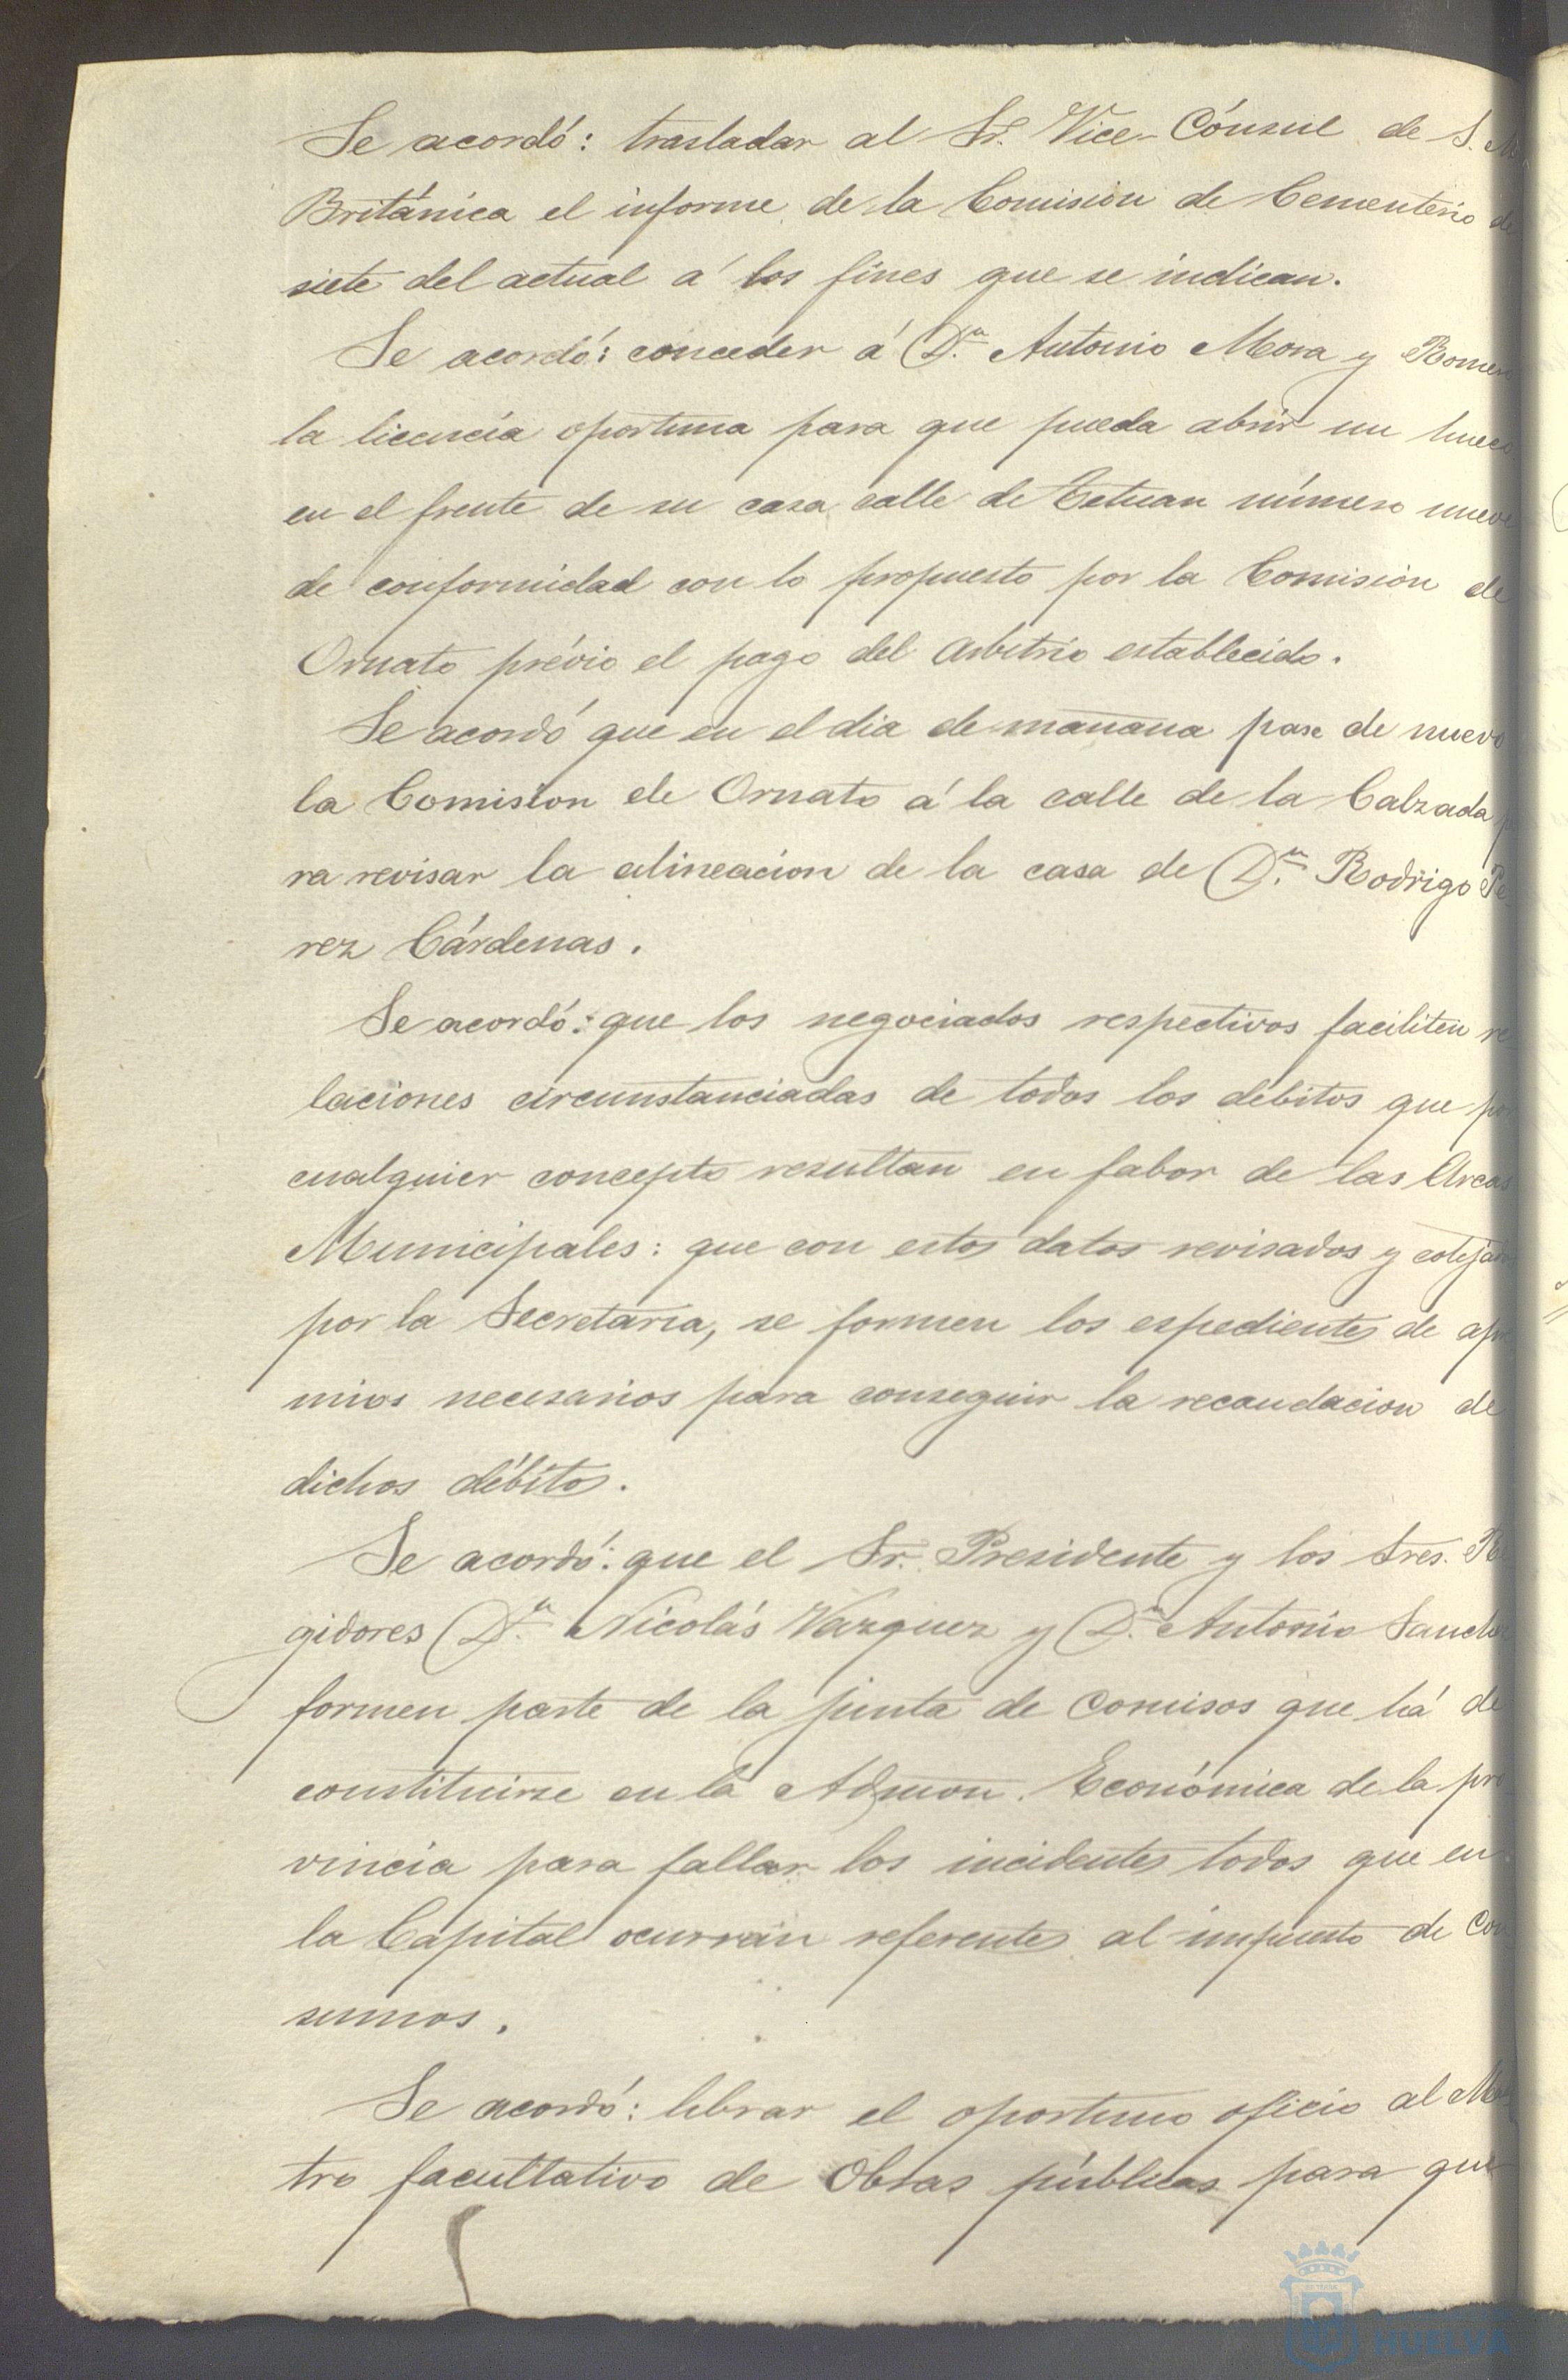 Se acordó: trasladar al Sr. Vice-Cónsul de S. M.
Británica el informe de la Comision de Cementerio de
siete del actual á los fines que se indican.
Se acordó: conceder á D.n Antonio Mora y Romero
la licencia oportuna para que pueda abrir un hueco
en el frente de su casa calle de Tetuan número nueve
de conformidad con lo propuesto por la Comision de
Ornato prévio el pago del arbitrio establecido.
Se acordó que en el dia de mañana pase de nuevo
la Comision de Ornato á la calle de la Calzada p
ra revisar la alineacion de la casa de D.n Rodrigo Pe
rez Cárdenas.
Se acordó: que los negociados respectivos faciliten re
laciones circunstanciadas de todos los débitos que por
cualquier concepto resultan en fabor de las Arcas
Municipales: que con estos datos revisados y cotejad
por la Secretaria, se formen los espedientes de apr
mios necesarios para conseguir la recaudacion de
dichos débitos.
Se acordó: que el Sr. Presidente y los Sres. Re
gidores D.n Nicolás Vazquez y D.n Antonio Sanchez
formen parte de la junta de Comisos que há de
constituirse en la Admon. Económica de la pro
vincia para fallar los incidentes todos que en
la Capital ocurran referentes al impuesto de Con
sumos.
Se acordó: librar el oportuno oficio al Ma
tro facultativo de Obras públicas para que
HUELVA